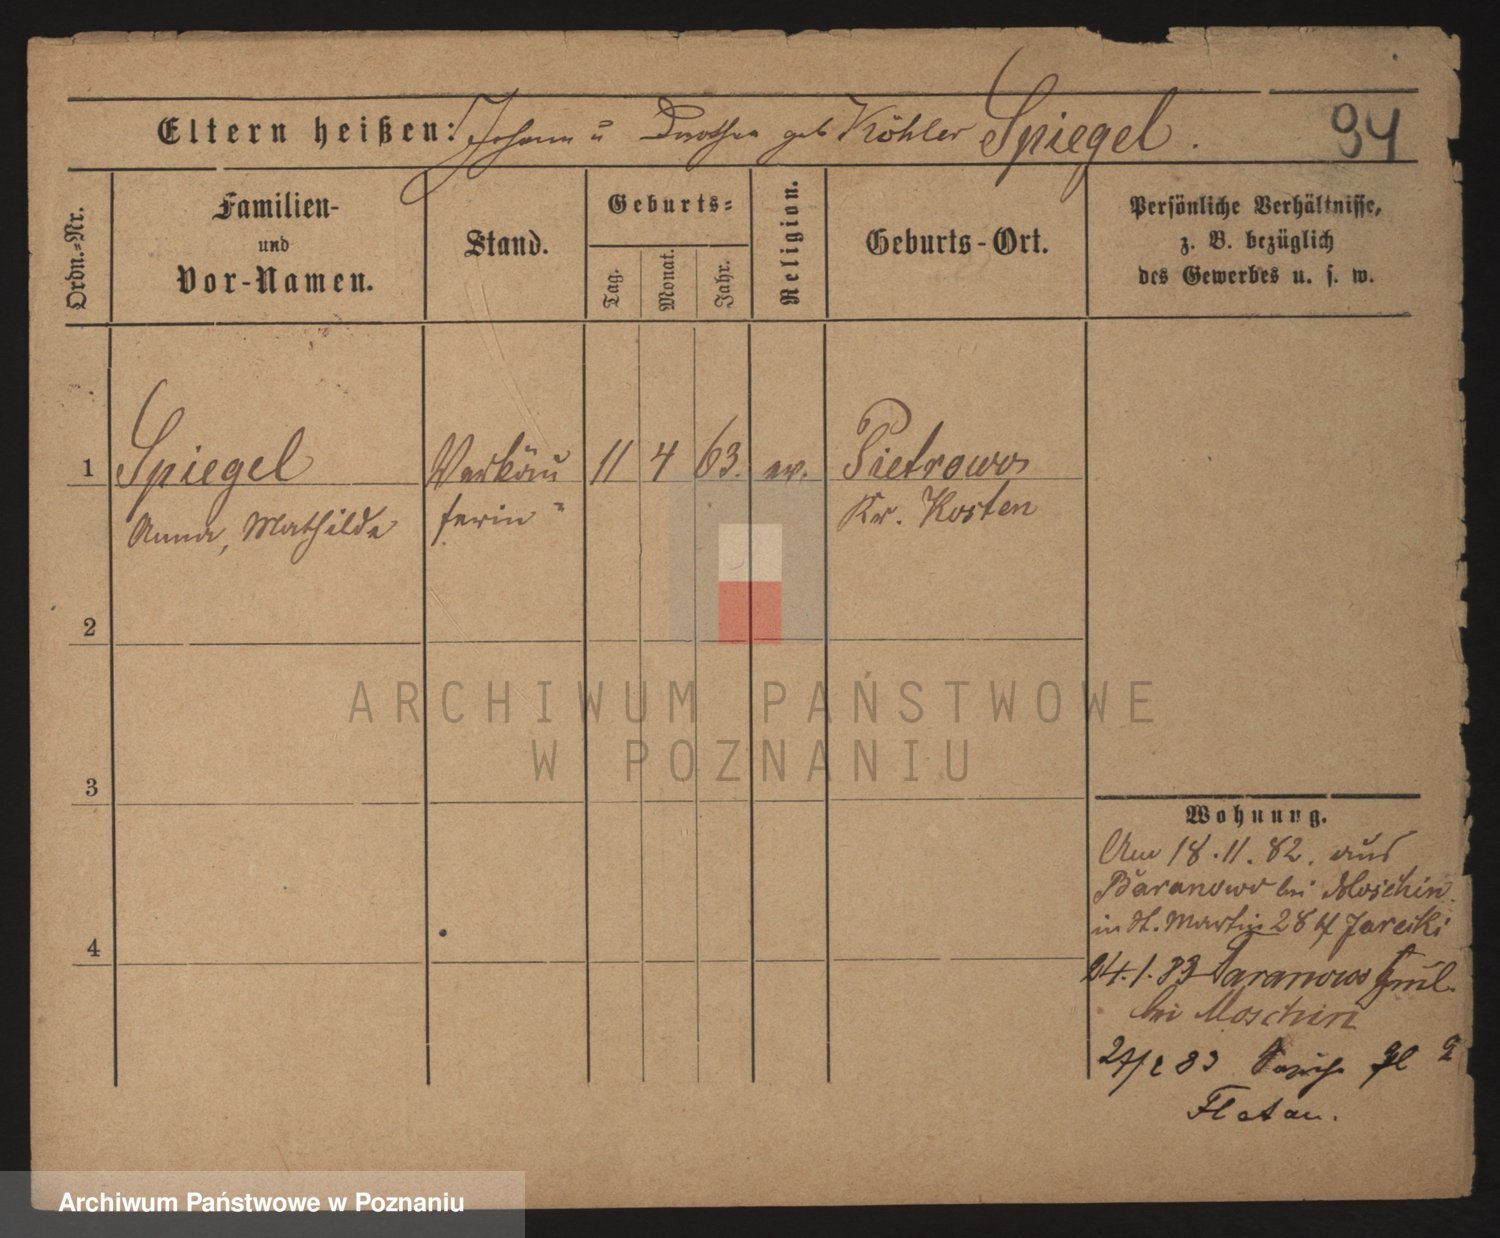 Eltern heißen: Johann u Dorothea geb Köhler Spiegel.
94
Ordn.-Nr.
Familien-
und
Vor-Namen.
Stand.
Geburts-
Tag.
Monat.
Jahr.
Religion.
Geburts-Ort.
Persönliche Verhältnisse,
z. B. bezüglich
des Gewerbes u. s. w.
1 Spiegel Verkäu 11 4 63. ev. Pietrowo
Anna, Mathilde ferin Kr. Kosten
2
3
4
Wohnung.
Am 18.11.82. aus
Baranowo bei Moschin
in St. Martin 28 Jarecki
24.1.83 Baranowo
bei Moschin
83
Flatau.
ARCHIWUM PAŃSTWOWE
W POZNANIU
Archiwum Państwowe w Poznaniu